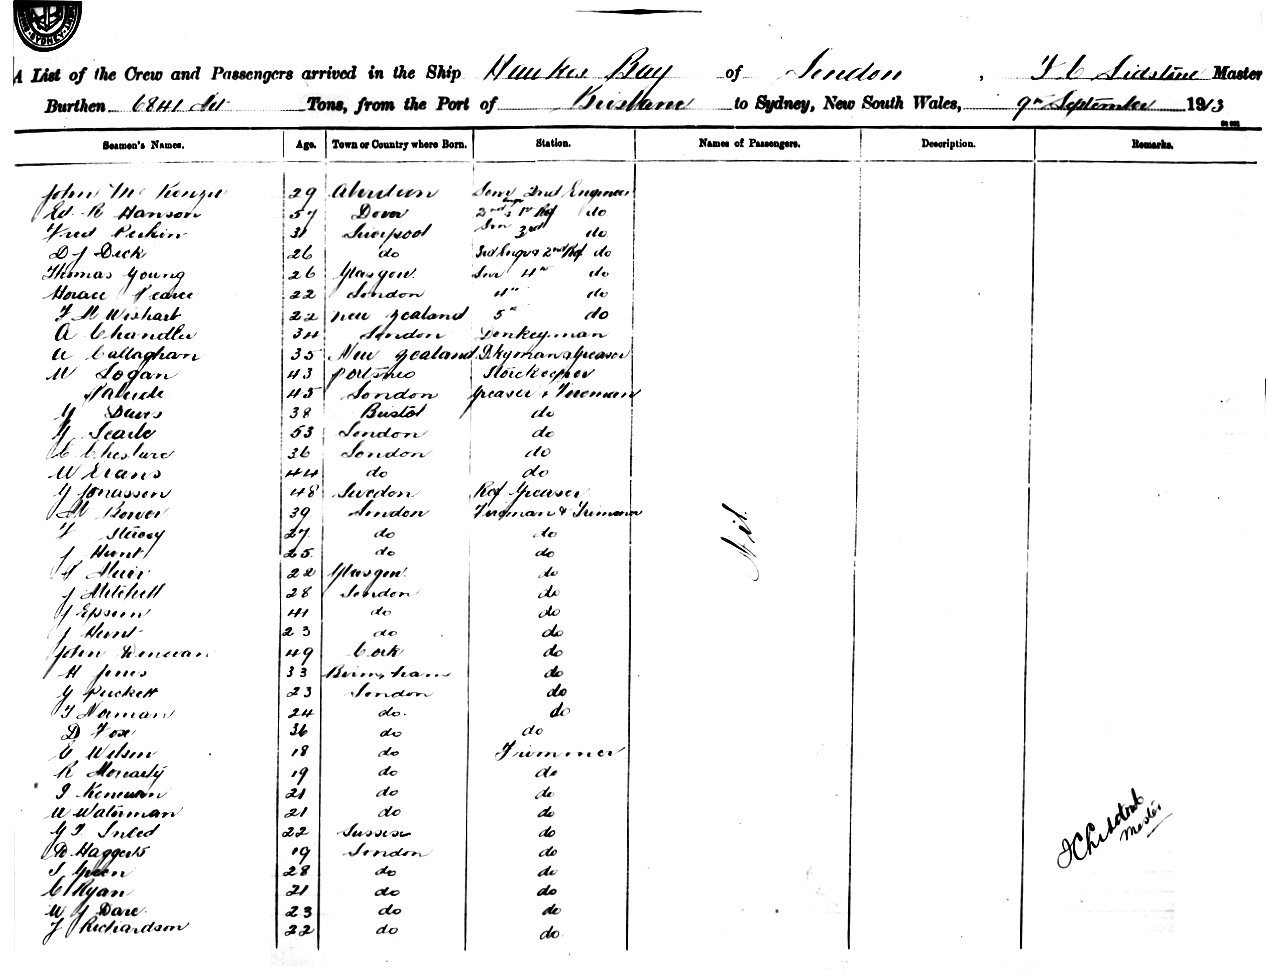 SYDNEY
A List of the Crew and Passengers arrived in the Ship Hawkes Bay of London, F C Lidstone Master
Burthen 6841 Tons, from the Port of Brisbane to Sydney, New South Wales, 9th September 1913
Seamen's Names. Age. Town or Country where Born. Station. Names of Passengers. Description. Remarks.
John Mc Kenzie 29 Aberdeen Senr 2nd Engineer
Ed. R Hanson 57 Dover 2nd & 1st Ref do
Fred Perkin 31 Liverpool Jun 3rd do
D J Dick 26 do 3rd Engr & 2nd Ref do
Thomas Young 26 Glasgow 4th do
Horace Pearce 22 London 4th do
F M Wishart 22 New Zealand 5th do
A Chandler 34 London Donkeyman
W Callaghan 35 New Zealand Dkyman & Greaser
W Logan 43 Storekeeper
45 London Greaser & Fireman
G Davis 38 Bristol do
G Searle 53 London do
C Cheshire 36 London do
W Evans 44 do do
G Jonassen 48 Sweden Ref Greaser
M Bower 39 London Fireman & Trimmer
F 27 do do
J Hunt 25 do do
Muir 22 Glasgow do
J Mitchell 28 London do
J Epsom 41 do do
J Hunt 23 do do
John 49 Cork do
H Jones 33 Birmgham do
G Puckett 23 London do
T Norman 24 do do
D Fox 36 do do
C Wilson 18 do Trimmer
R Moriarty 19 do do
21 do do
W Waterman 21 do do
G T 22 Sussex do
D Haggerty 19 London do
Green 28 do do
C Ryan 21 do do
W J Dare 23 do do
J Richardson 22 do do
Nil
F C Lidstone
Master